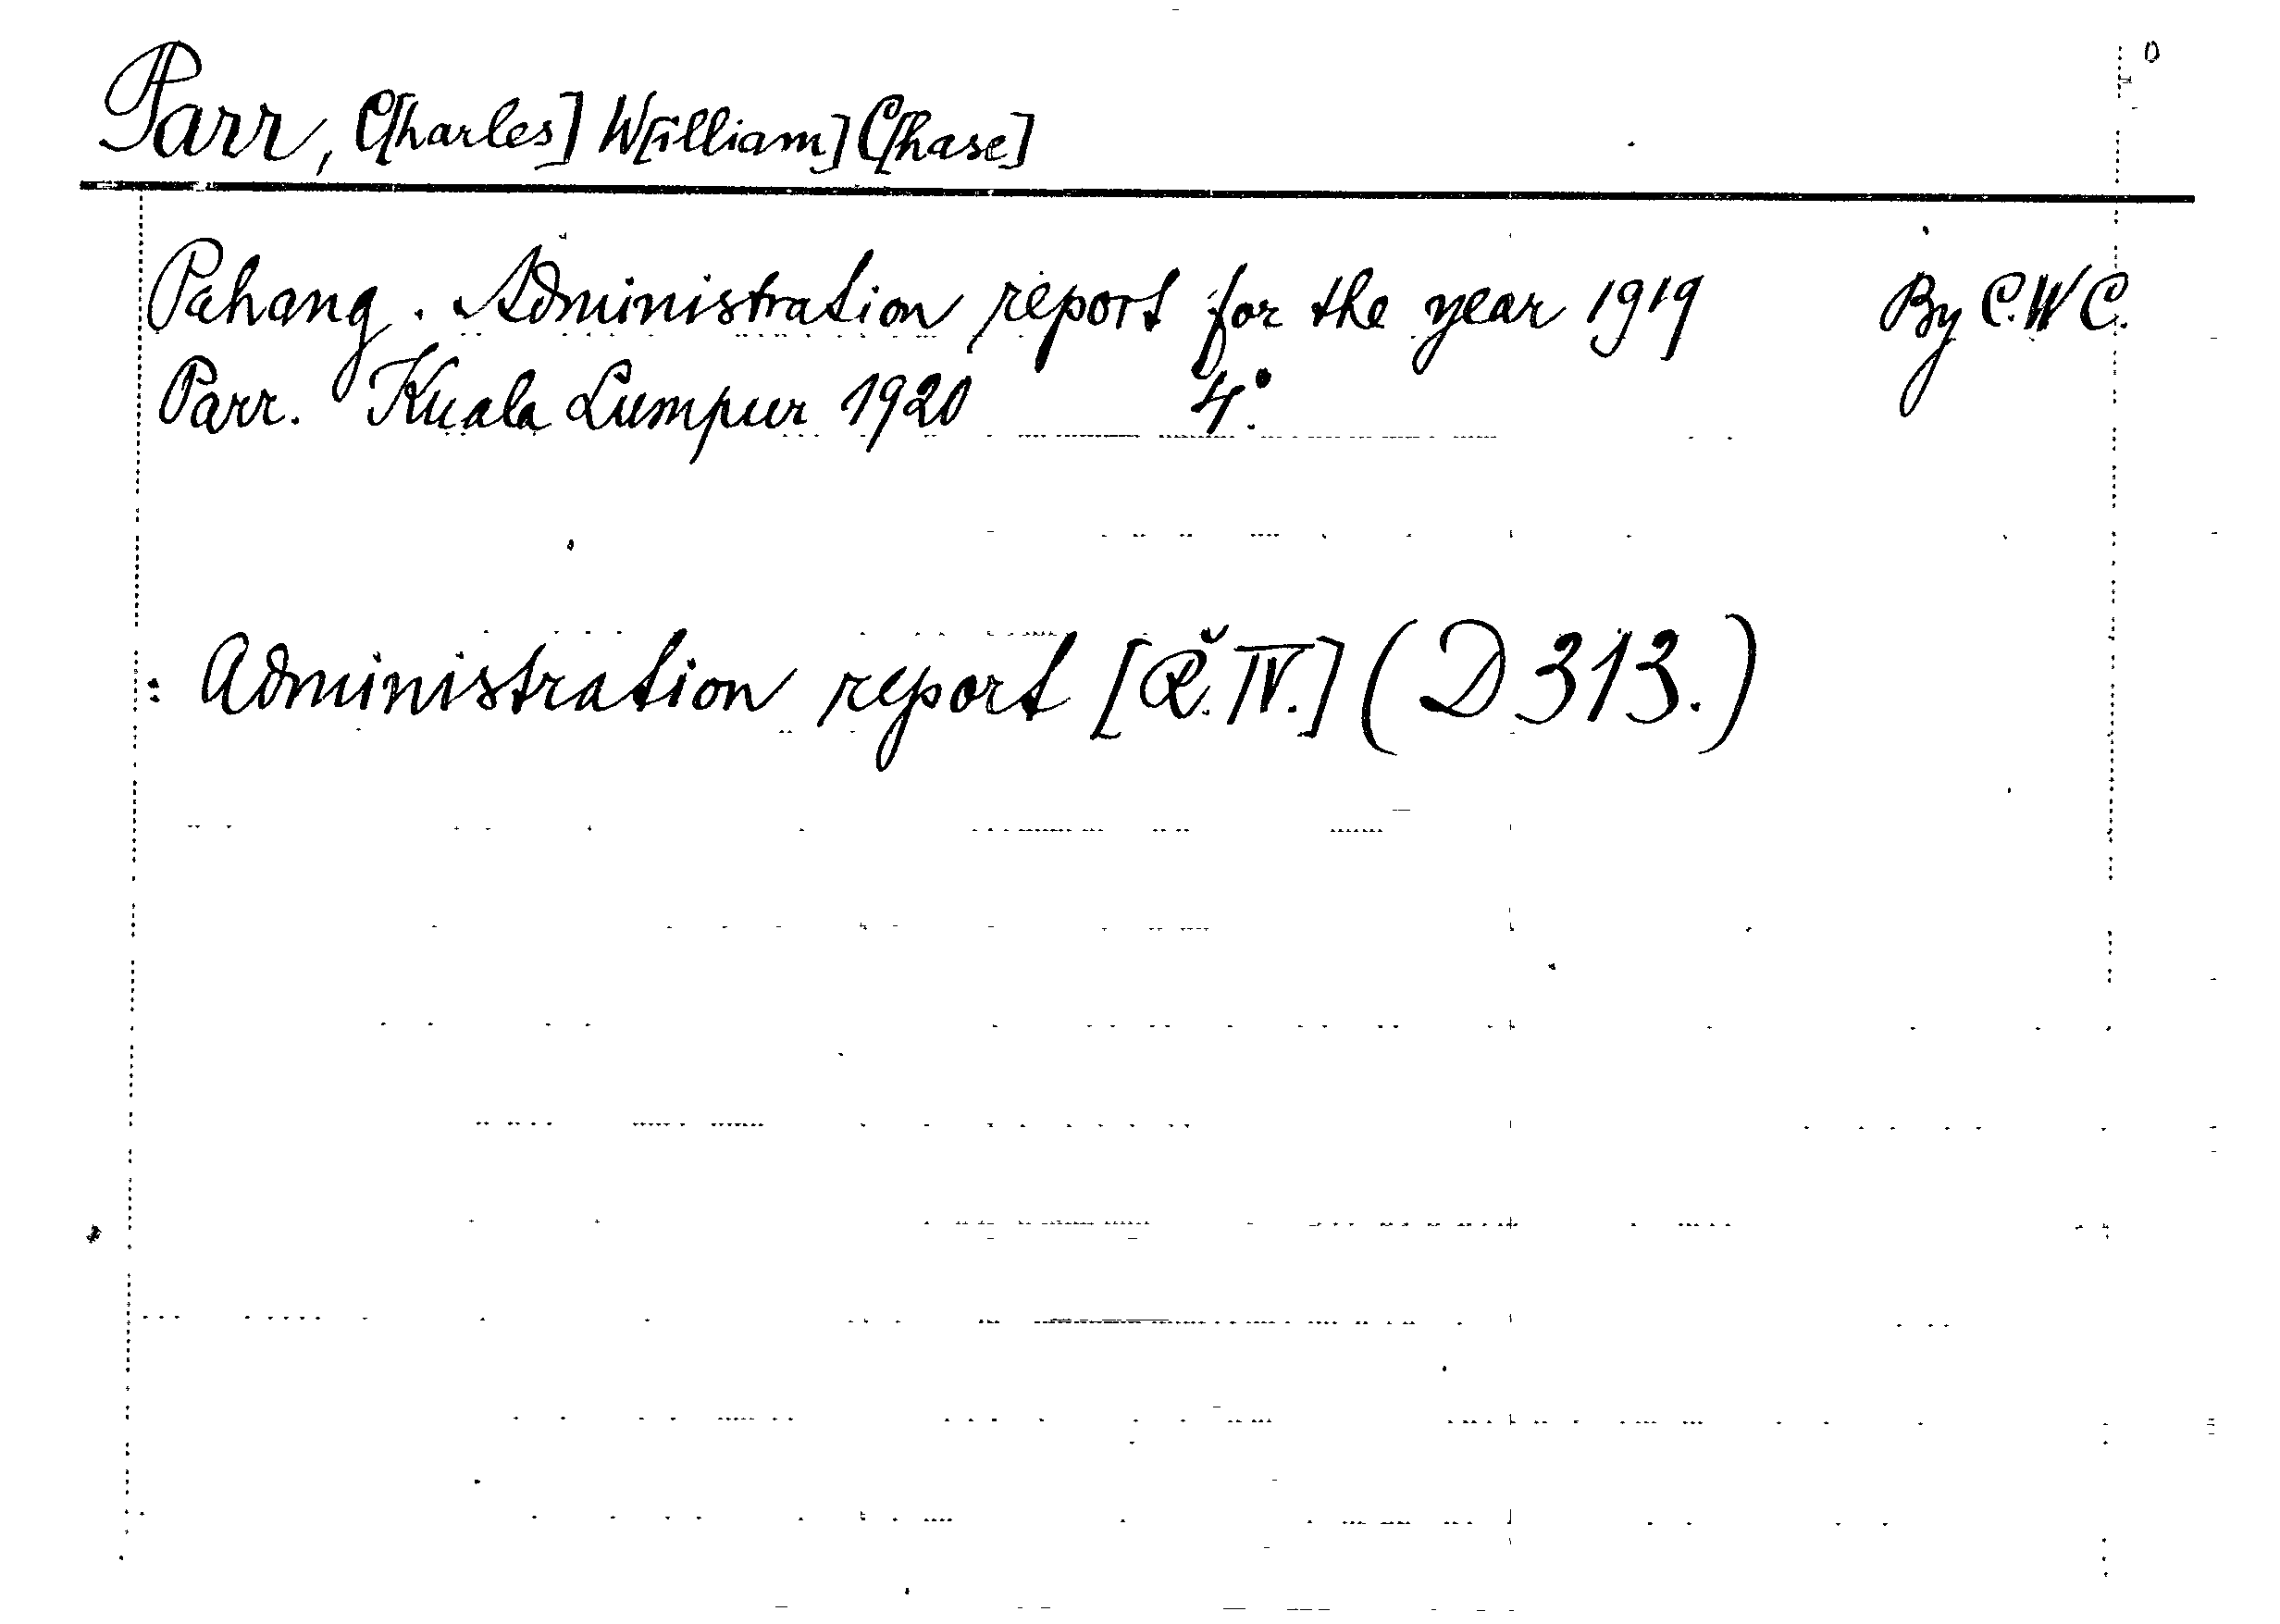 Parr, C[harles] W[illiam] C[hase]
Pahang. Administration report for the year 1919 By C.W C.
Parr. Kuala Lumpur 1920 4°.
: Administration report [Ř. IV.] (D 313.)